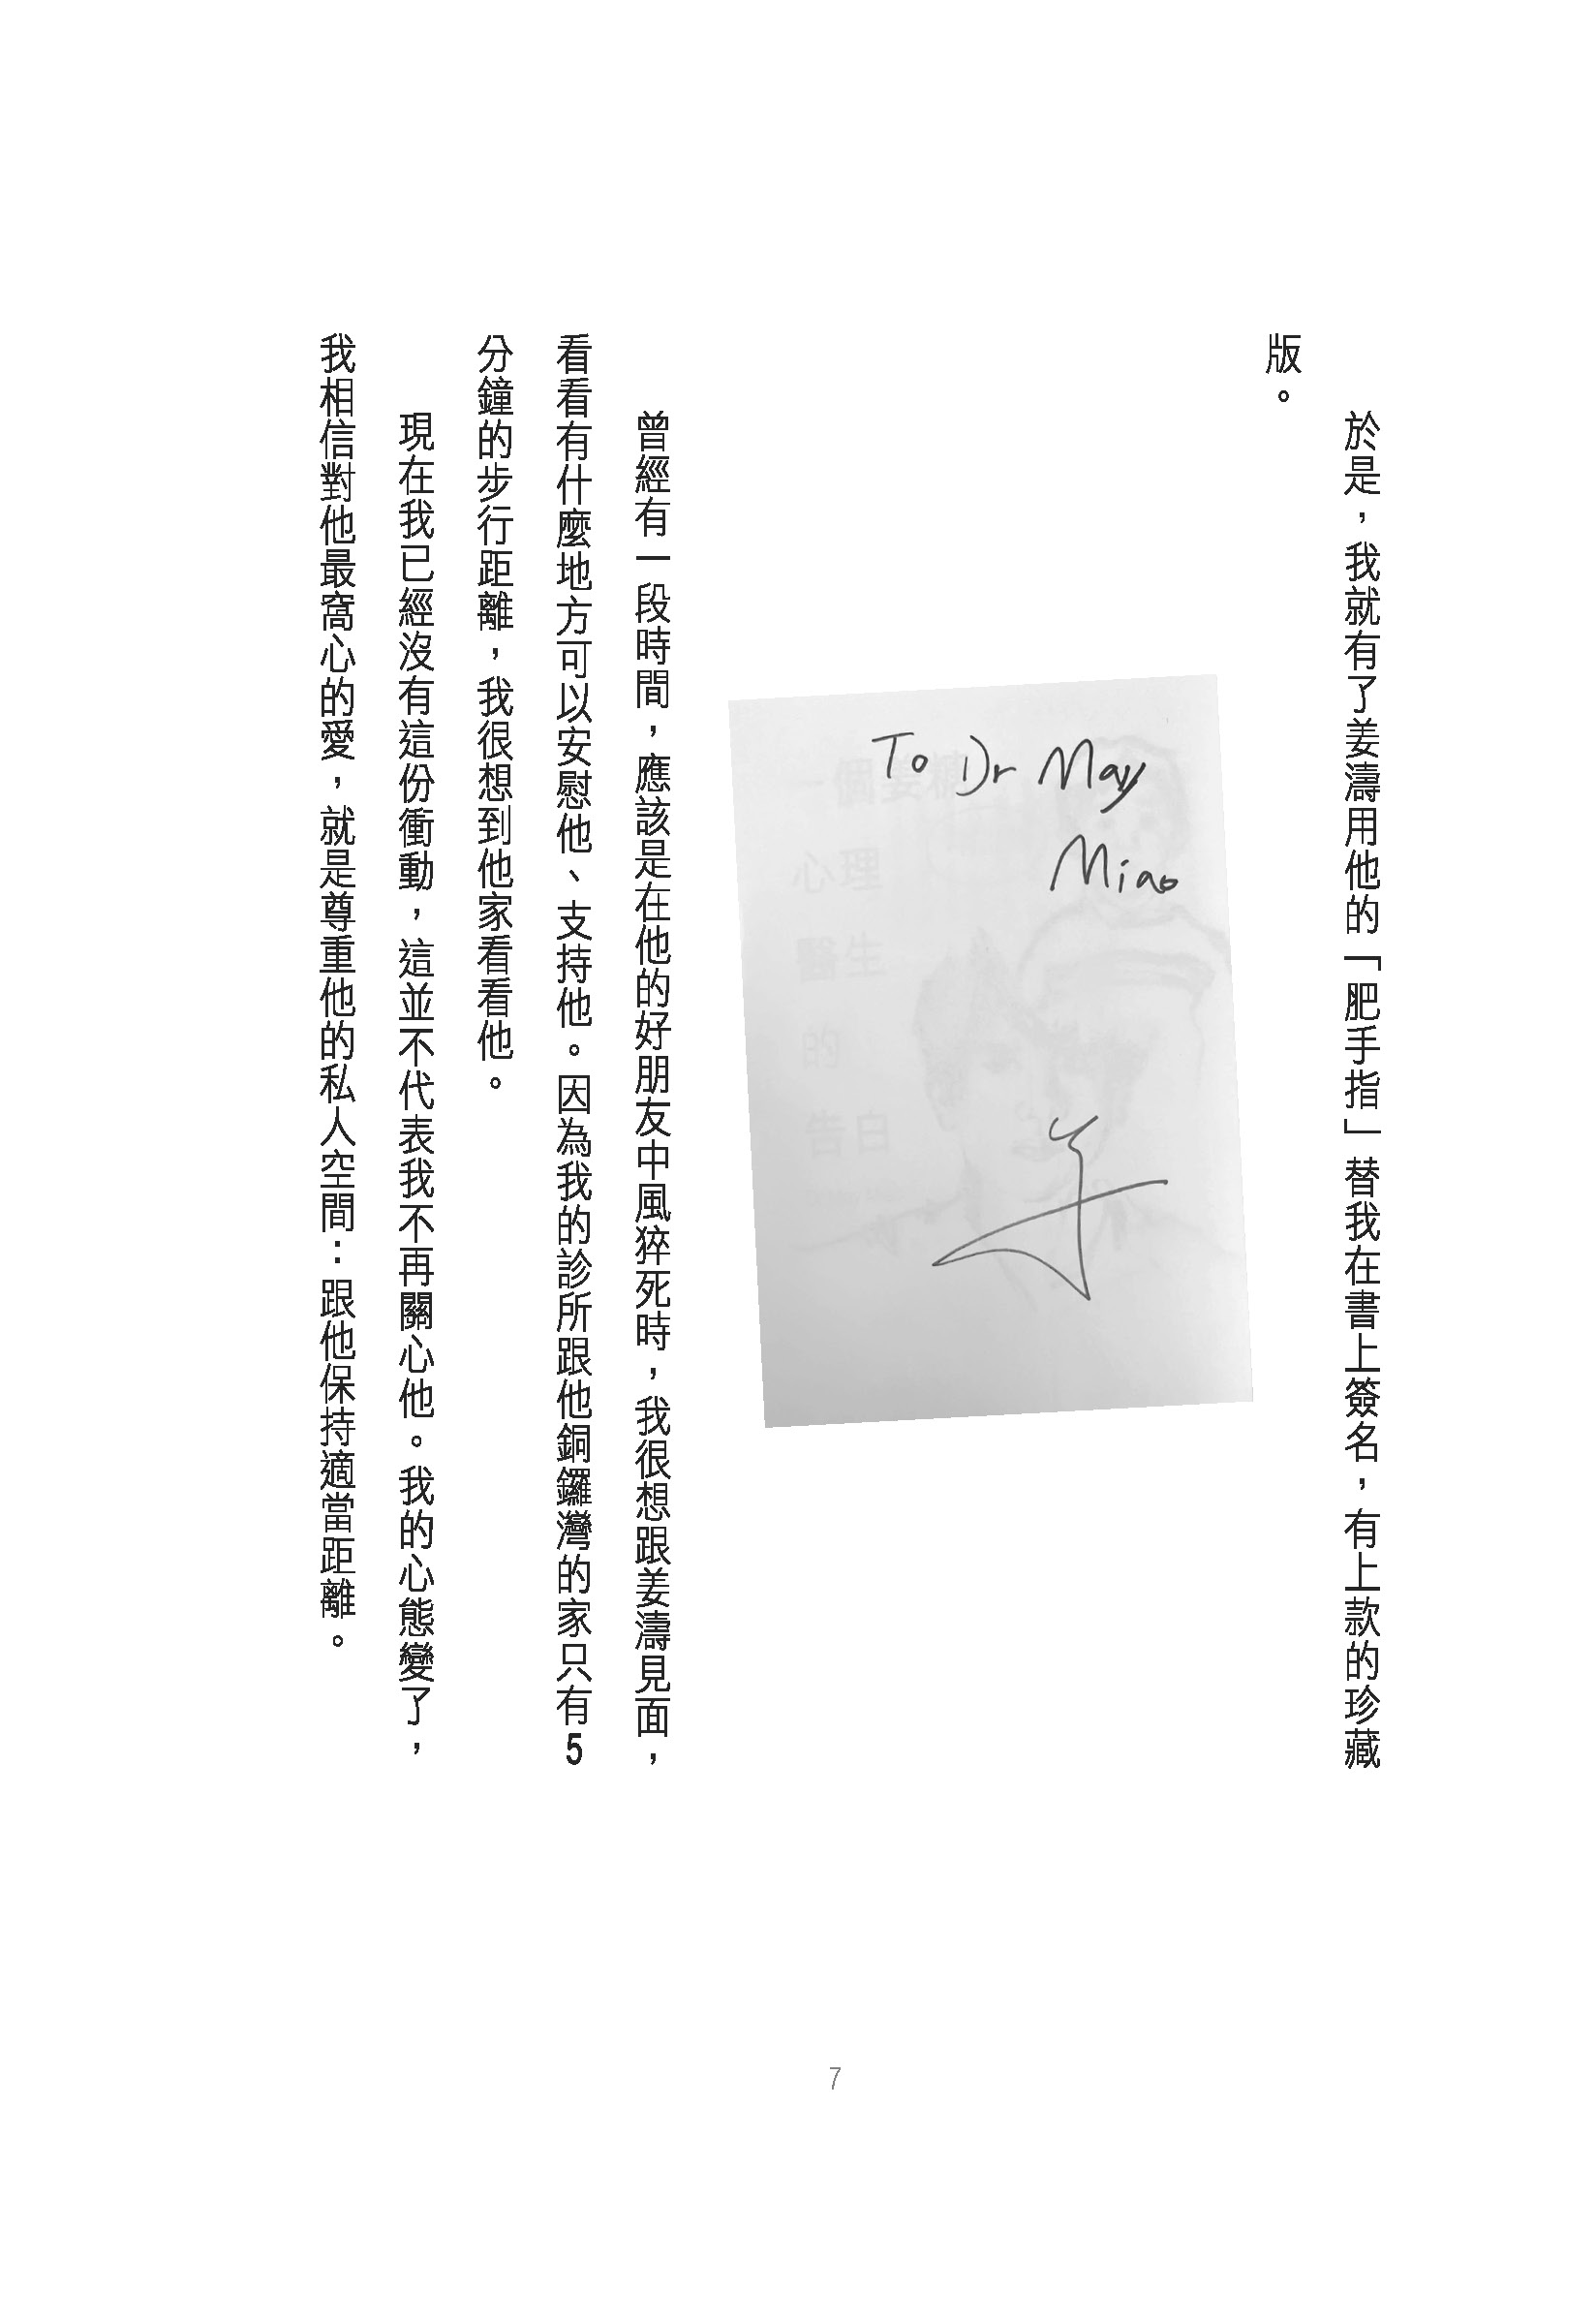 於是，我就有了姜濤用他的「肥手指」替我在書上簽名，有上款的珍藏
版。
To Dr May
Miao
一個姜糖
心理
醫生
的
告白
曾經有一段時間，應該是在他的好朋友中風猝死時，我很想跟姜濤見面，
看看有什麼地方可以安慰他、支持他。因為我的診所跟他銅鑼灣的家只有5
分鐘的步行距離，我很想到他家看看他。
現在我已經沒有這份衝動，這並不代表我不再關心他。我的心態變了，
我相信對他最窩心的愛，就是尊重他的私人空間：跟他保持適當距離。
7